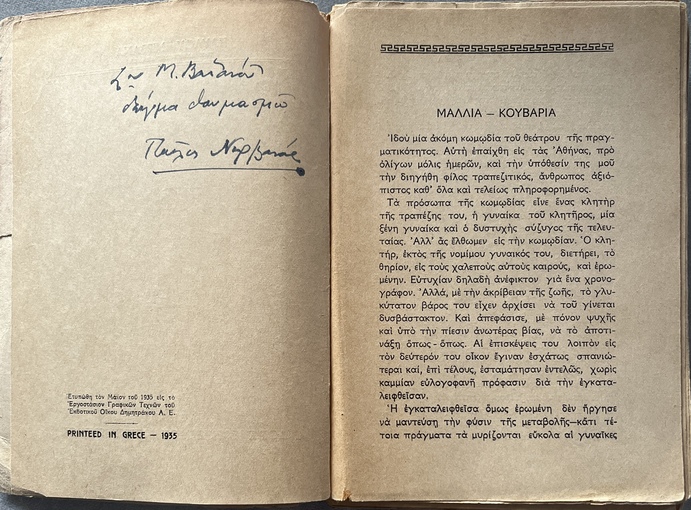 Στον Μ. Βαϊάνο
δείγμα θαυμασμού
Παύλος Νιρβάνας
Ετυπώθη τὸν Μάϊον τοῦ 1935 εἰς τὸ
Ἐργοστάσιον Γραφικῶν Τεχνῶν τοῦ
Ἐκδοτικοῦ Οἴκου Δημητράκου Α. Ε.
PRINTEED IN GRECE — 1935
ΜΑΛΛΙΑ – ΚΟΥΒΑΡΙΑ
Ἰδοὺ μία ἀκόμη κωμῳδία τοῦ θεάτρου τῆς πραγ-
ματικότητος. Αὐτὴ ἐπαίχθη εἰς τὰς Ἀθήνας, πρὸ
ὀλίγων μόλις ἡμερῶν, καὶ τὴν ὑπόθεσίν της μοῦ
τὴν διηγήθη φίλος τραπεζιτικός, ἄνθρωπος ἀξιό-
πιστος καθ' ὅλα καὶ τελείως πληροφορημένος.
Τὰ πρόσωπα τῆς κωμῳδίας εἶνε ἕνας κλητὴρ
τῆς τραπέζης του, ἡ γυναίκα τοῦ κλητῆρος, μία
ξένη γυναίκα καὶ ὁ δυστυχὴς σύζυγος τῆς τελευ-
ταίας. Ἀλλ' ἂς ἔλθωμεν εἰς τὴν κωμῳδίαν. Ὁ κλη-
τήρ, ἐκτὸς τῆς νομίμου γυναικός του, διετήρει, τὸ
θηρίον, εἰς τοὺς χαλεποὺς αὐτοὺς καιρούς, καὶ ἐρω-
μένην. Εὐτυχίαν δηλαδὴ ἀνέφικτον γιὰ ἕνα χρονο-
γράφον. Ἀλλά, μὲ τὴν ἀκρίβειαν τῆς ζωῆς, τὸ γλυ-
κύτατον βάρος του εἶχεν ἀρχίσει νὰ τοῦ γίνεται
δυσβάστακτον. Καὶ ἀπεφάσισε, μὲ πόνον ψυχῆς
καὶ ὑπὸ τὴν πίεσιν ἀνωτέρας βίας, νὰ τὸ ἀποτι-
νάξῃ ὅπως - ὅπως. Αἱ ἐπισκέψεις του λοιπὸν εἰς
τὸν δεύτερόν του οἶκον ἔγιναν ἐσχάτως σπανιώ-
τεραι καί, ἐπὶ τέλους, ἐσταμάτησαν ἐντελῶς, χωρὶς
καμμίαν εὐλογοφανῆ πρόφασιν διὰ τὴν ἐγκατα-
λειφθεῖσαν.
Ἡ ἐγκαταλειφθεῖσα ὅμως ἐρωμένη δὲν ἤργησε
νὰ μαντεύσῃ τὴν φύσιν τῆς μεταβολῆς—κάτι τέ-
τοια πράγματα τὰ μυρίζονται εὔκολα αἱ γυναῖκες